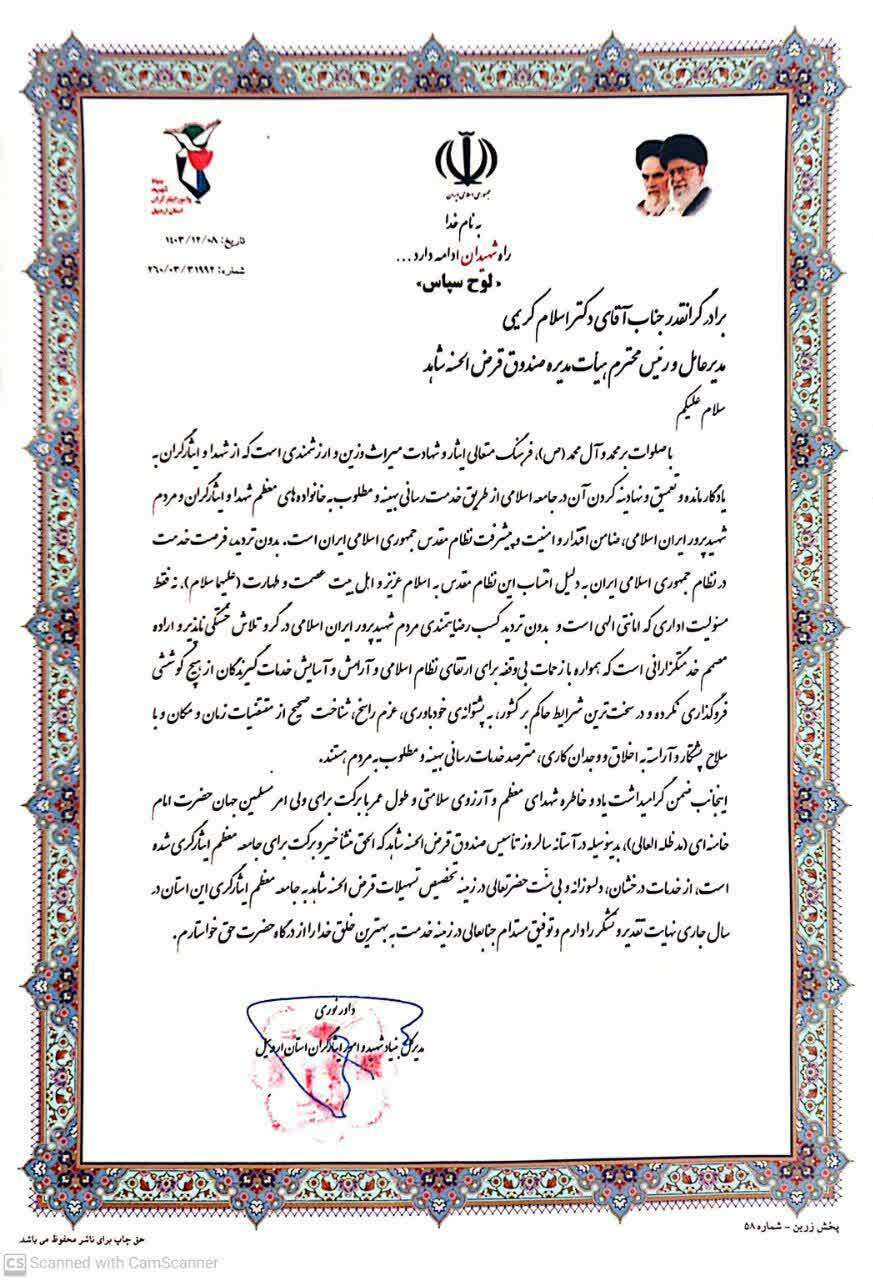 بنیاد
شهید
و امور ایثارگران
استان اردبیل
جمهوری اسلامی ایران
به نام خدا
راه شهیدان ادامه دارد...
تاریخ: ۱۴۰۳/۱۲/۰۸
شماره: ۲۶۰/۰۳/۳۱۹۹۴
«لوح سپاس»
برادر گرانقدر جناب آقای دکتر اسلام کریمی
مدیرعامل و رئیس محترم هیأت مدیره صندوق قرض الحسنه شاهد
سلام علیکم
با صلوات بر محمد و آل محمد (ص)، فرهنگ متعالی ایثار و شهادت میراث وزین و ارزشمندی است که از شهدا و ایثارگران به
یادگار مانده و تعمیق و نهادینه کردن آن در جامعه اسلامی از طریق خدمت رسانی بهینه و مطلوب به خانواده های معظم شهدا و ایثارگران و مردم
شهیدپرور ایران اسلامی، ضامن اقتدار و امنیت و پیشرفت نظام مقدس جمهوری اسلامی ایران است. بدون تردید، فرصت خدمت
در نظام جمهوری اسلامی ایران به دلیل انتساب این نظام مقدس به اسلام عزیز و اهل بیت عصمت و طهارت (علیها سلام)، نه فقط
مسئولیت اداری که امانتی الهی است و بدون تردید کسب رضایتمندی مردم شهیدپرور ایران اسلامی در گرو تلاش خستگی ناپذیر و اراده
مصمم خدمتگزارانی است که همواره با زحمات بی وقفه برای ارتقای نظام اسلامی و آرامش و آسایش خدمات گیرندگان از هیچ کوششی
فروگذاری نکرده و در سخت ترین شرایط حاکم بر کشور، به پشتوانه ی خودباوری، عزم راسخ، شناخت صحیح از مقتضیات زمان و مکان و با
سلاح پشتکار و آراسته به اخلاق و وجدان کاری، مترصد خدمات رسانی بهینه و مطلوب به مردم هستند.
اینجانب ضمن گرامیداشت یاد و خاطره شهدای معظم و آرزوی سلامتی و طول عمر با برکت برای ولی امر مسلمین جهان حضرت امام
خامنه ای (مد ظله العالی)، بدینوسیله در آستانه سالروز تأسیس صندوق قرض الحسنه شاهد که الحق منشأ خیر و برکت برای جامعه معظم ایثارگری شده
است، از خدمات درخشان، دلسوزانه و بی منت حضرتعالی در زمینه تخصیص تسهیلات قرض الحسنه شاهد به جامعه معظم ایثارگری این استان در
سال جاری نهایت تقدیر و تشکر را دارم و توفیق مستدام جنابعالی در زمینه خدمت به بهترین خلق خدا را از درگاه حضرت حق خواستارم.
داور نوری
مدیرکل بنیاد شهید و امور ایثارگران استان اردبیل
پخش زرین - شماره ۵۸
حق چاپ برای ناشر محفوظ می باشد
CS Scanned with CamScanner